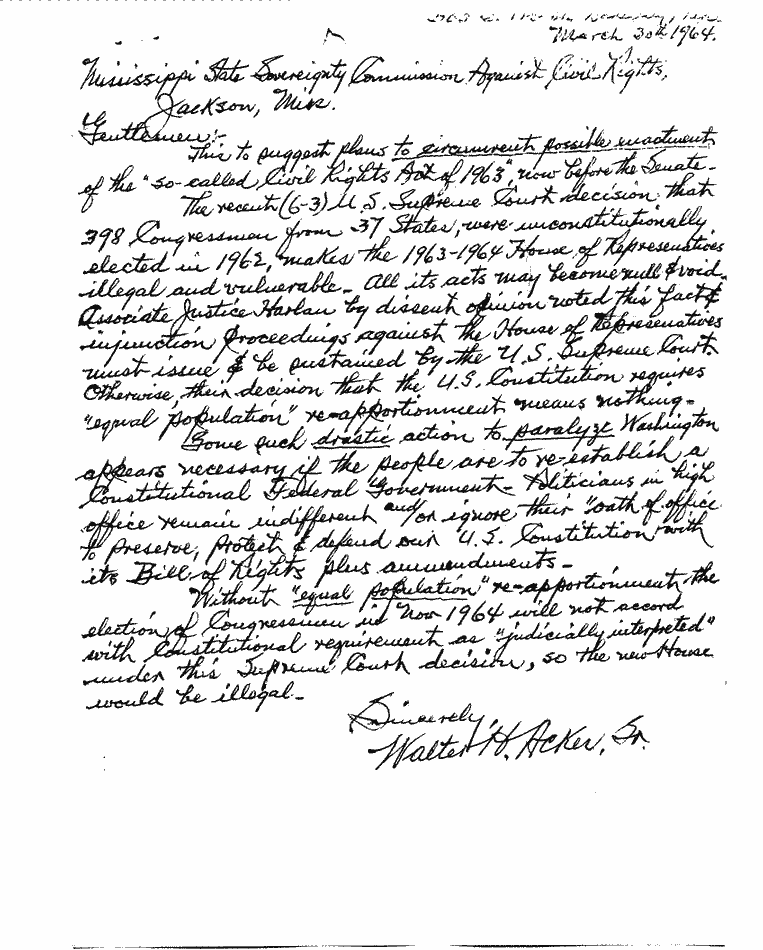 March 30th 1964.
Mississippi State Sovereignty Commission Against Civil Rights,
Jackson, Miss.
Gentlemen:-
This to suggest plans to circumvent possible enactment
of the "so-called Civil Rights Act of 1963", now before the Senate-
The recent (6-3) U.S. Supreme Court decision that
398 Congressmen from 37 States, were unconstitutionally
elected in 1962, makes the 1963-1964 House of Representatives
illegal and vulnerable- All its acts may become null & void.
Associate Justice Harlan by dissent opinion noted this fact &
injunction proceedings against the House of Representatives
must issue & be sustained by the U.S. Supreme Court.
Otherwise, their decision that the U.S. Constitution requires
"equal population" re-apportionment means nothing-
Some such drastic action to paralyze Washington
appears necessary if the people are to re-establish a
Constitutional Federal Government- Politicians in high
office remain indifferent and/or ignore their "oath of office
to preserve, protect & defend our U.S. Constitution with
its Bill of Rights plus ammendments-
Without "equal population" re-apportionment the
election of Congressmen in Nov 1964 will not accord
with Constitutional requirement as "judicially interpreted"
under this Supreme Court decision, so the new House
would be illegal-
Sincerely,
Walter H. Acker, Sr.